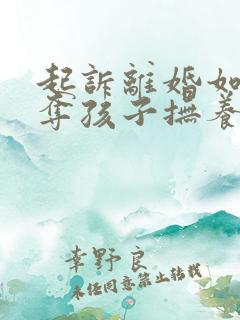 起訴離婚如
奪孩子撫養
幸野良
未任同意禁止转载